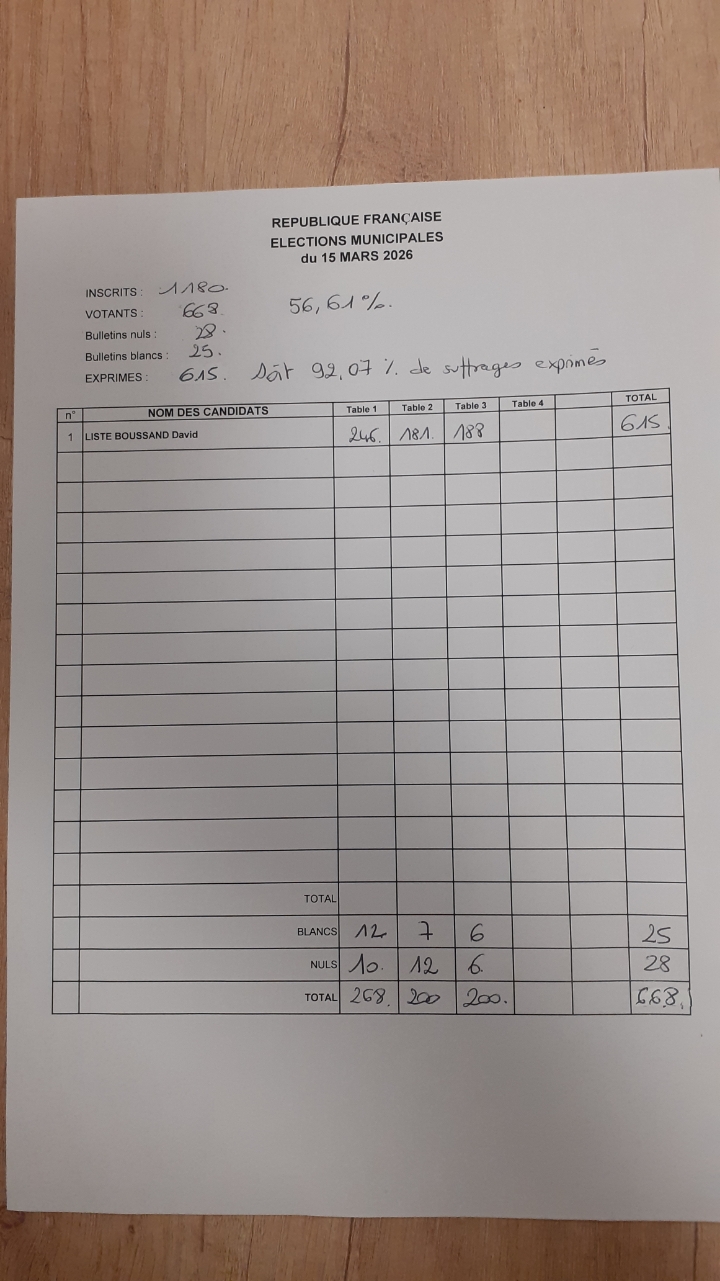 REPUBLIQUE FRANÇAISE
ELECTIONS MUNICIPALES
du 15 MARS 2026
INSCRITS : 1180.
VOTANTS : 668. 56,61 %.
Bulletins nuls : 28.
Bulletins blancs : 25.
EXPRIMES : 615. Soit 92,07 % de suffrages exprimés
n° NOM DES CANDIDATS Table 1 Table 2 Table 3 Table 4 TOTAL
1 LISTE BOUSSAND David 246. 181. 188 615.
TOTAL
BLANCS 12 7 6 25
NULS 10. 12 6. 28
TOTAL 268. 200 200. 668.